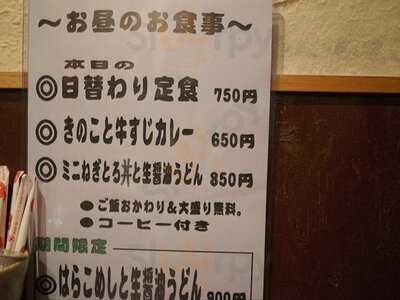 ～お昼のお食事～
本日の
◎日替わり定食 750円
◎きのこと牛すじカレー 650円
◎ミニねぎとろ丼と生醤油うどん 850円
●ご飯おかわり＆大盛り無料。
●コーヒー付き
期間限定
◎はらこめしと生醤油うどん 900円